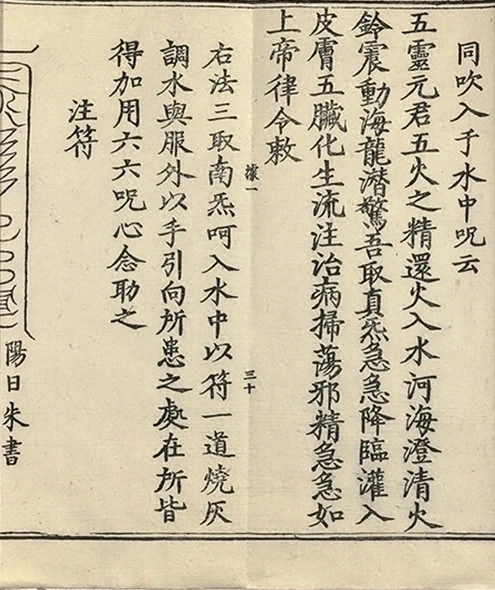 同吹入于水中呪云
五靈元君五火之精還火入水河海澄清火
鈴震動海龍潛驚吾取真炁急急降臨灌入
皮膚五臟化生流注治病掃蕩邪精急急如
上帝律令敕
右法三取南炁呵入水中以符一道燒灰
調水與服外以手引向所患之處在所皆
得加用六六呪心念助之
注符
陽日朱書
三十